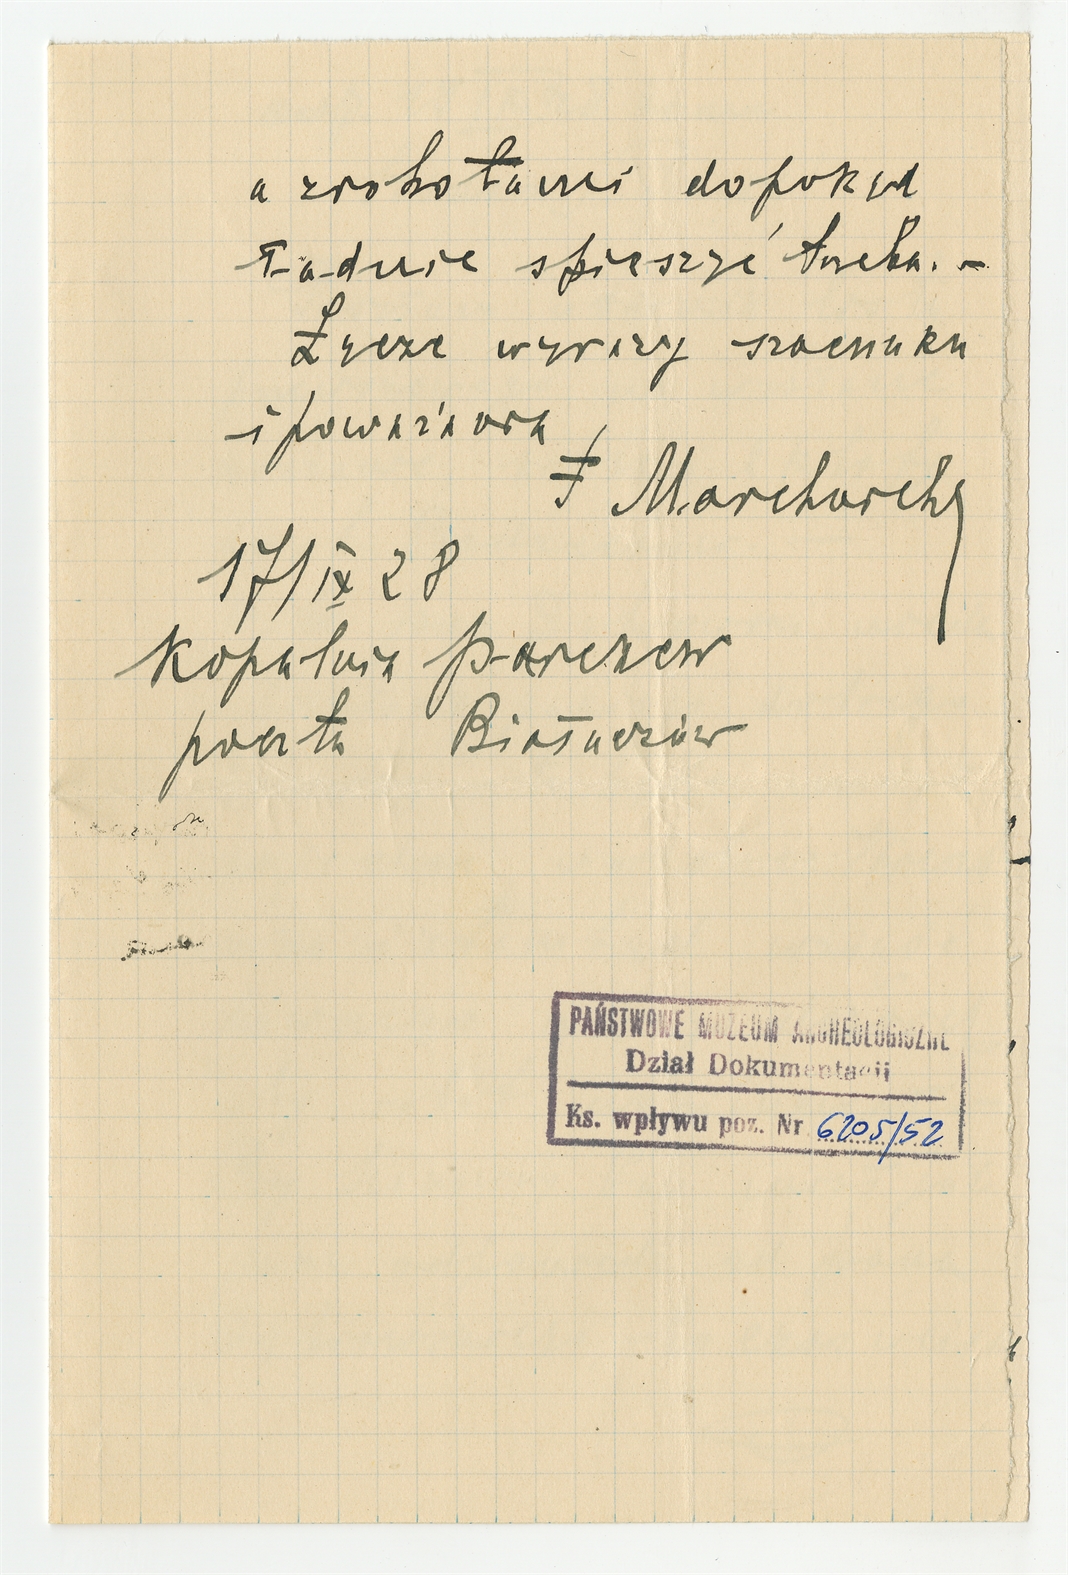 a z robotami dopokąd
ładnie spieszyć trzeba. –
Łączę wyrazy szacunku
i poważania
F Marchwicki
17/IX 28
Kopalnia Parczew
poczta Białaczów
PAŃSTWOWE MUZEUM ARCHEOLOGICZNE
Dział Dokumentacji
Ks. wpływu poz. Nr 6205/52